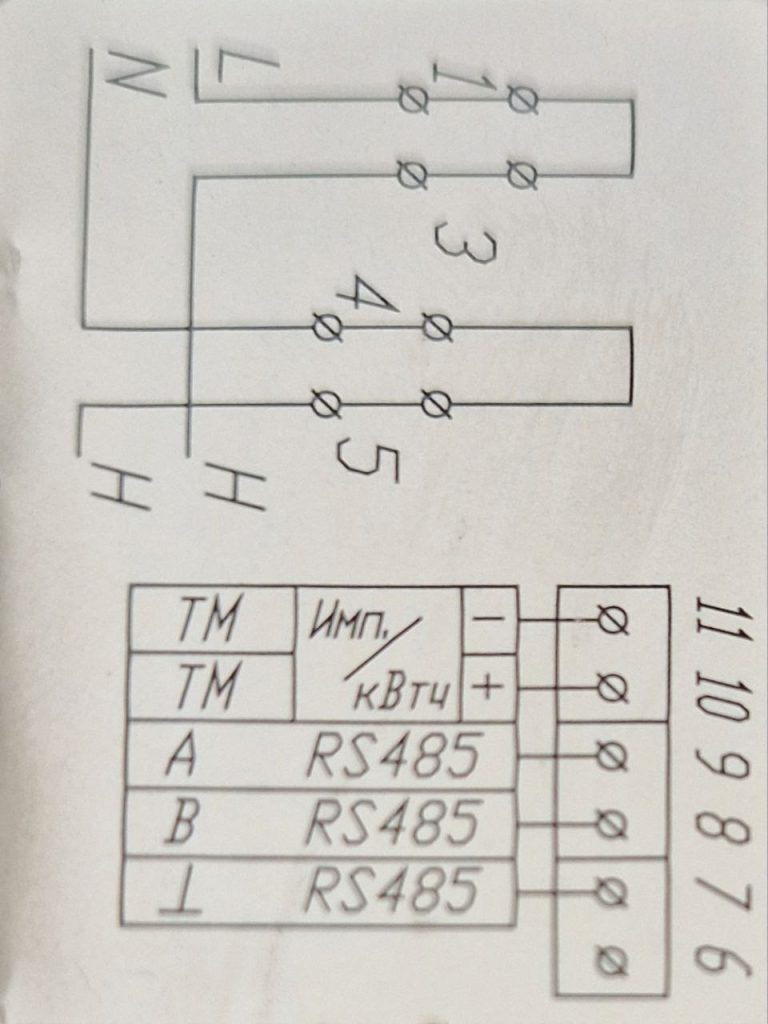 L
N
1
3
4
5
H
H
ТМ Имп./кВтч - 11
ТМ + 10
A RS485 9
B RS485 8
⊥ RS485 7
6